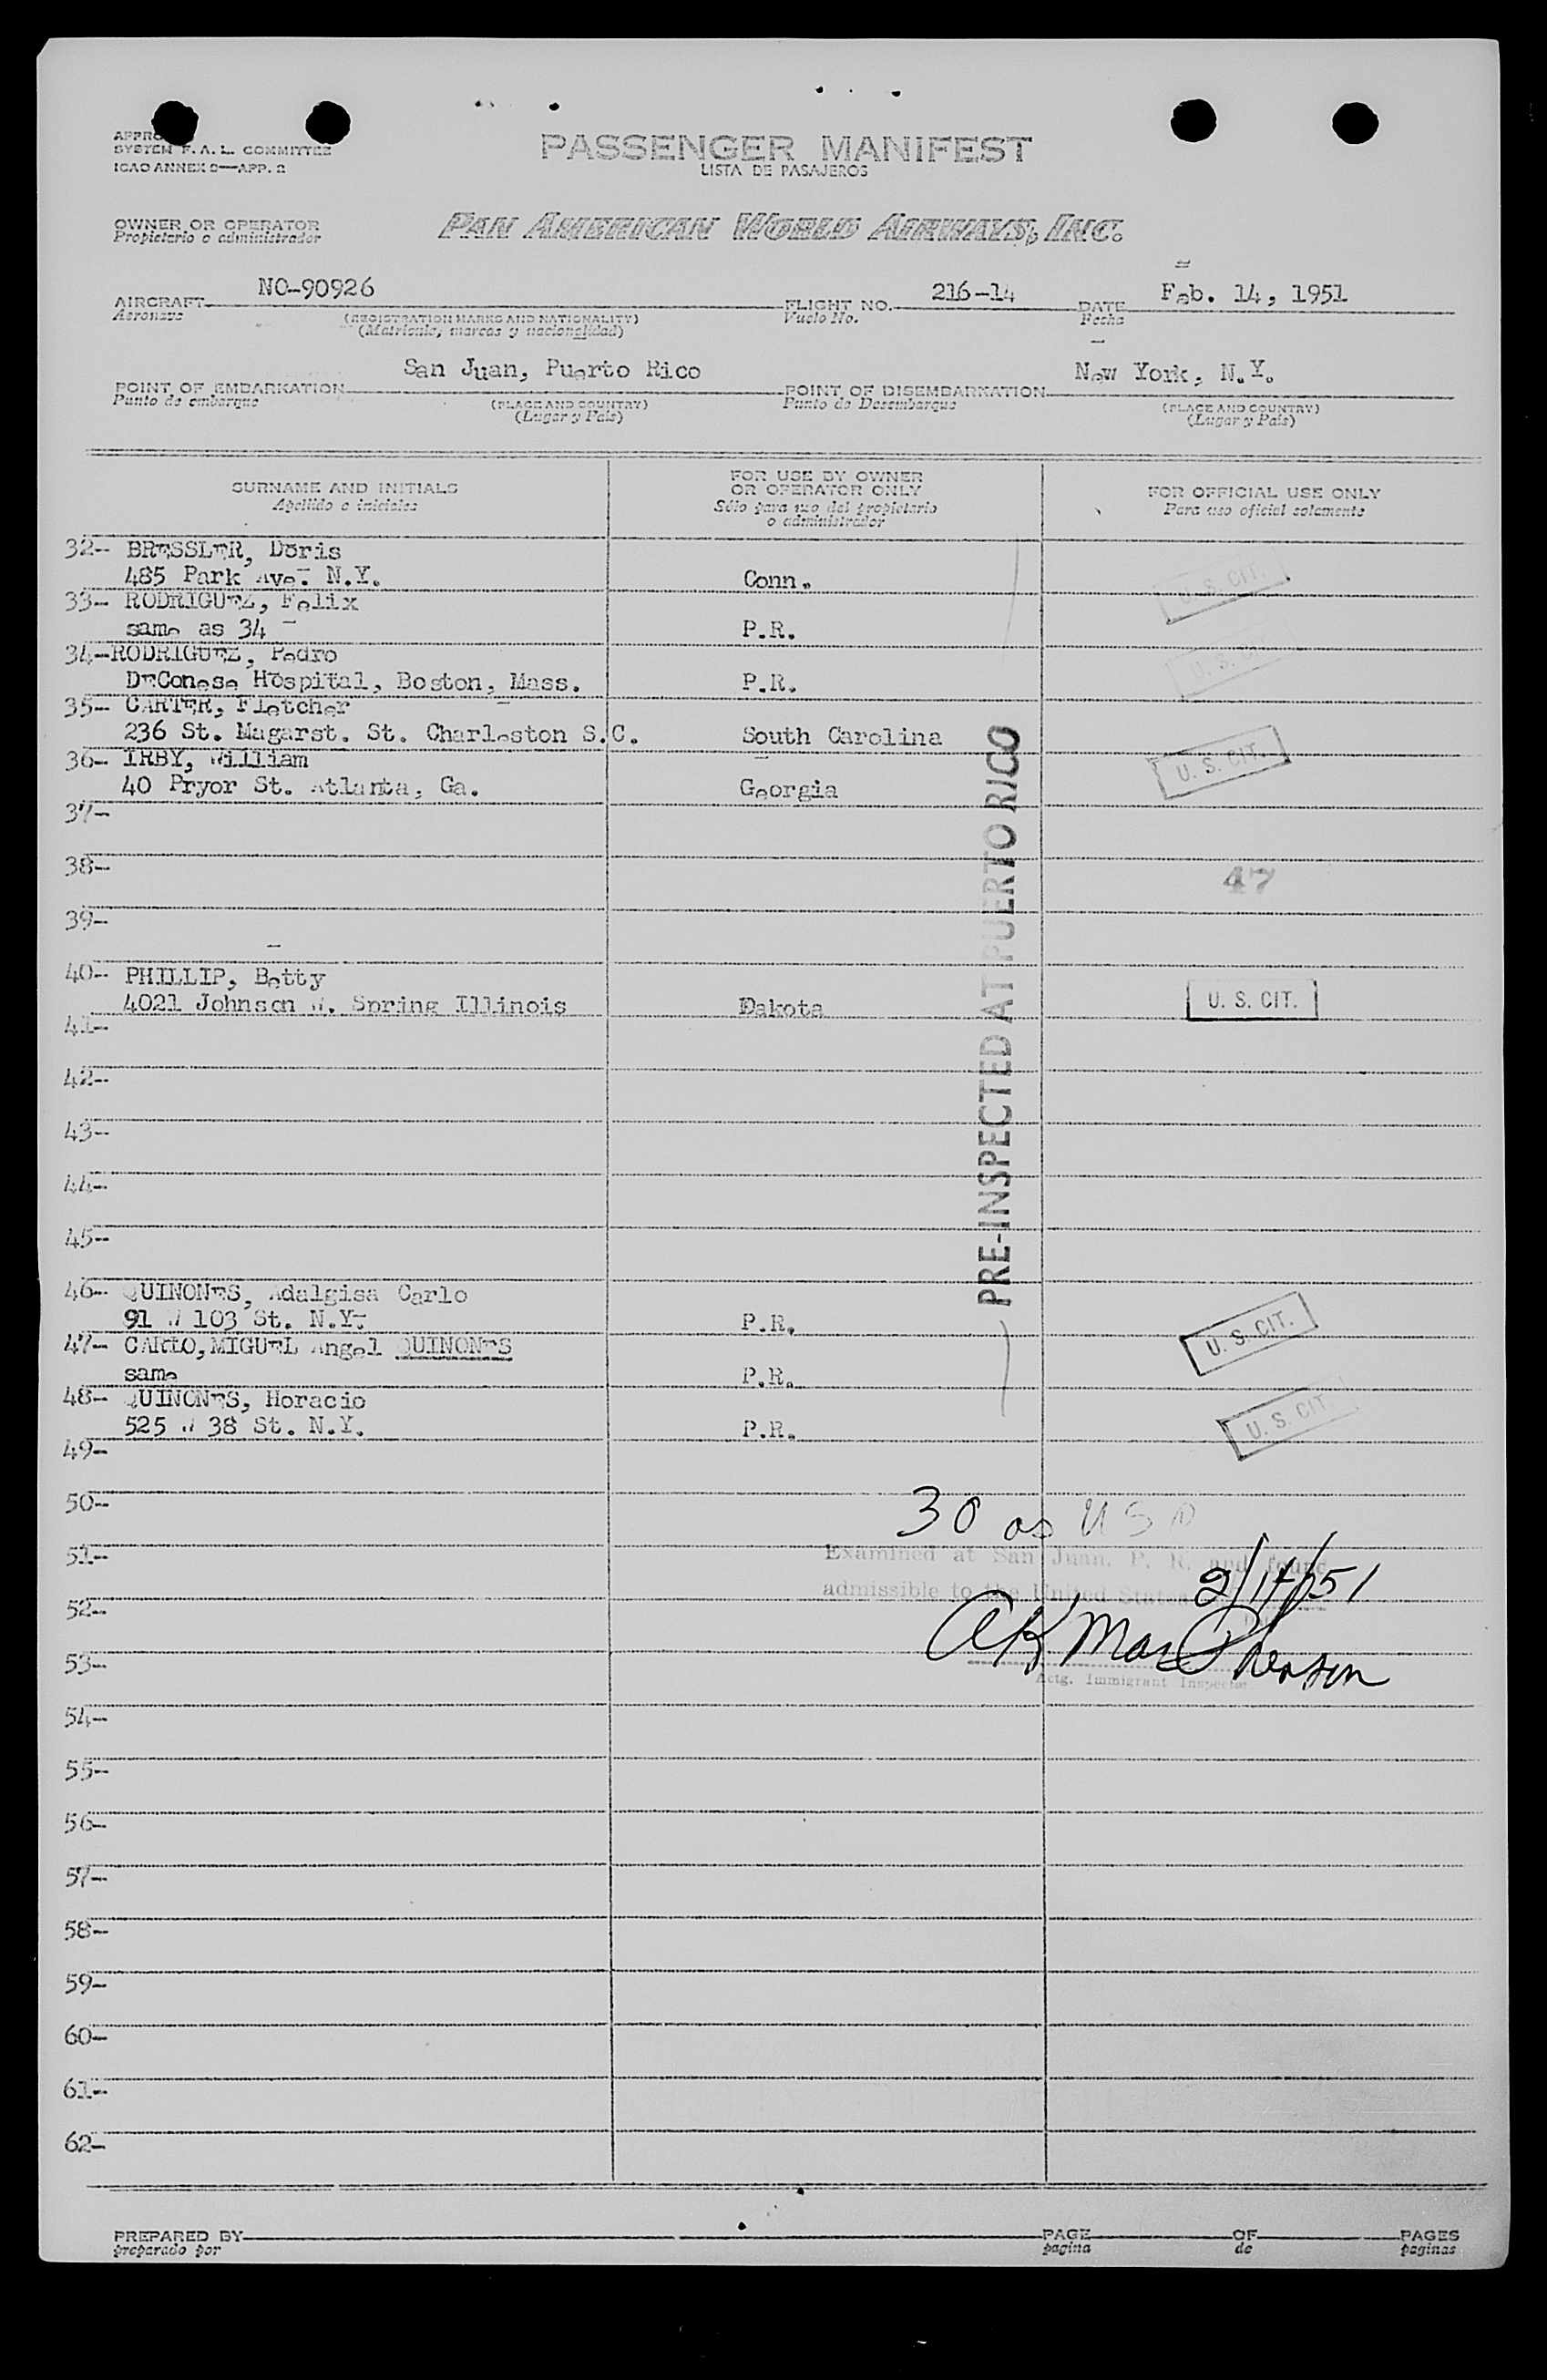 SYSTEM F. A. L. COMMITTEE
ICAO ANNEX 9—APP. 2
PASSENGER MANIFEST
LISTA DE PASAJEROS
OWNER OR OPERATOR
Propietario o administrador
PAN AMERICAN WORLD AIRWAYS, INC.
AIRCRAFT NC-90926 FLIGHT NO. 216-14 DATE Feb. 14, 1951
Aeronave (REGISTRATION MARKS AND NATIONALITY) Vuelo No. Fecha
(Matricula, marcas y nacionalidad)
POINT OF EMBARKATION San Juan, Puerto Rico POINT OF DISEMBARKATION New York, N.Y.
Punto de embarque (PLACE AND COUNTRY) Punto de Desembarque (PLACE AND COUNTRY)
(Lugar y Pais) (Lugar y Pais)
SURNAME AND INITIALS
Apellido e iniciales
FOR USE BY OWNER
OR OPERATOR ONLY
Sólo para uso del propietario
o administrador
FOR OFFICIAL USE ONLY
Para uso oficial solamente
32- BRESSLER, Doris
485 Park Ave. N.Y. Conn. U. S. CIT.
33- RODRIGUEZ, Felix
same as 34 P.R.
34-RODRIGUEZ, Pedro U. S. CIT.
DEConese Hospital, Boston, Mass. P.R.
35- CARTER, Fletcher
236 St. Magarst. St. Charleston S.C. South Carolina
36- IRBY, William U. S. CIT.
40 Pryor St. Atlanta, Ga. Georgia
37-
38- 47
39-
40- PHILLIP, Betty
4021 Johnson W. Spring Illinois Dakota U. S. CIT.
41-
42-
43-
44-
45-
PRE-INSPECTED AT PUERTO RICO
46- QUINONES, Adalgisa Carlo
91 W 103 St. N.Y. P.R. U. S. CIT.
47- CARLO, MIGUEL Angel QUINONES
same P.R.
48- QUINONES, Horacio
525 W 38 St. N.Y. P.R. U. S. CIT.
49-
50- 30 as
51- Examined at San Juan, P. R. and found
2/14/51
52- admissible to the United States
A K MacPherson
53-
Actg. Immigrant Inspector
54-
55-
56-
57-
58-
59-
60-
61-
62-
PREPARED BY PAGE OF PAGES
preparado por pagina de paginas